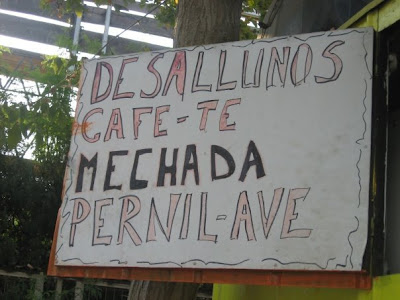 DESALLUNOS
CAFE-TE
MECHADA
PERNIL-AVE